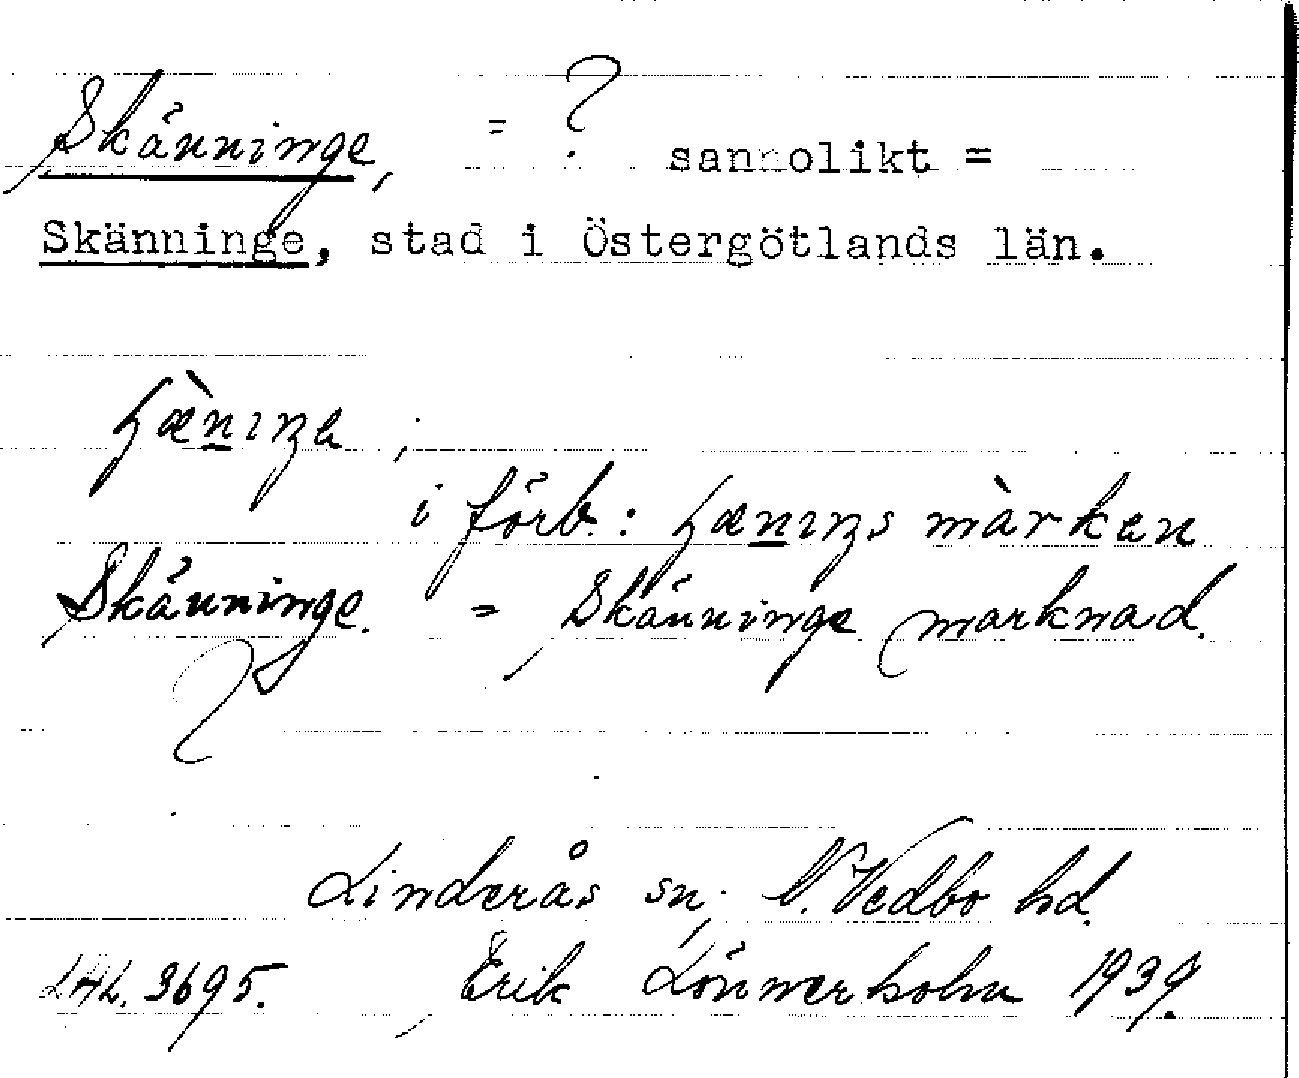 Skänninge, = ? sannolikt =
Skänninge, stad i Östergötlands län.
i förb.: märken
Skänninge. = Skänninge marknad.
?
Linderås sn, N. Vedbo hd.
3695. Erik Lönnerholm 1939.